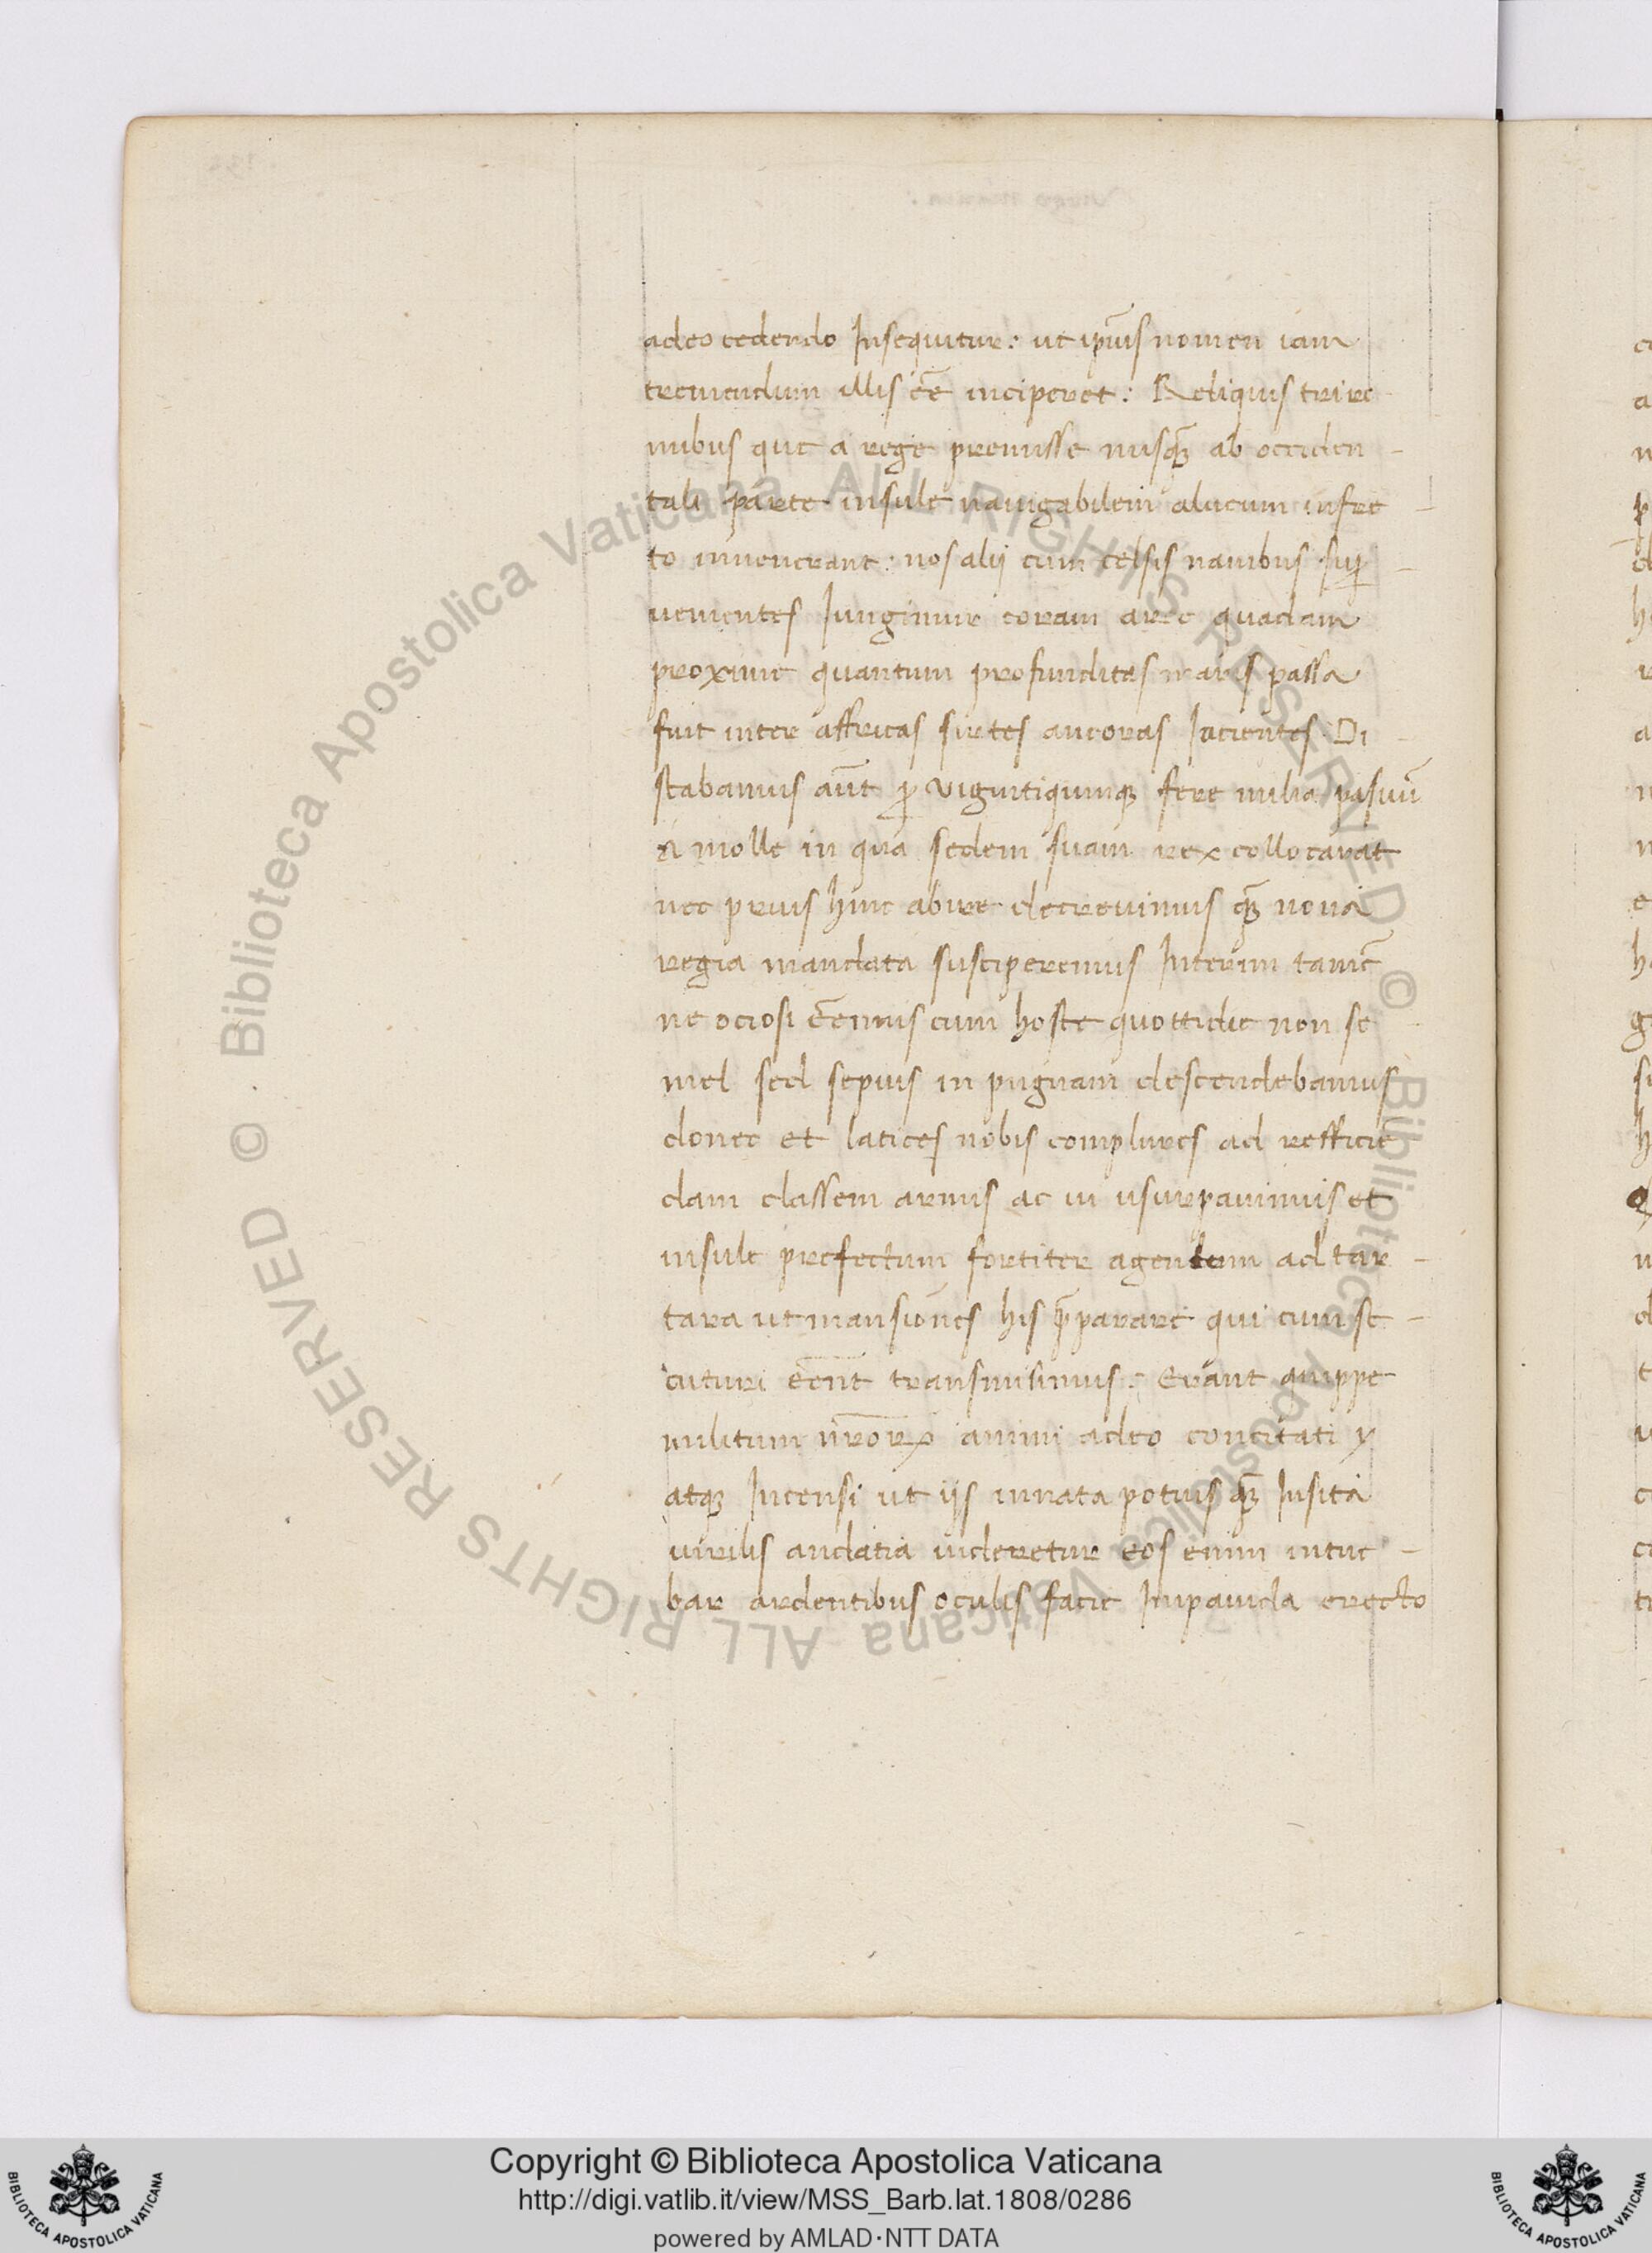 adeo cedendo Insequitur: ut ip̄ius nomen iam
tremendum illis eē inciperet: Reliquis trire
mibus que a rege premisse nusq̄ ab occiden-
tali parte insule nauigabilem alueum in fre-
to inuenerant: nos alij cum celsis nauibus sup̄-
uenientes Iungimur coram arce quadam
proxime quantum profunditas maris passa
fuit inter affricas sirtes ancoras Iacientes. Di-
stabamus aūt ꝑ uigintiquinqꝫ fere milia pasuū
a molle in qua sedem suam rex collocarat
nec prius hinc abire decreuimus q̄ noua
regia mandata susciperemus Interim tamē
ne ociosi eēmus cum hoste quottidie non se
mel sed sepius in pugnam descendebamus
donec et latices nobis complures ad refficiē
dam classem armis ac ui usurpauimus et
insule prefectum fortiter agentem ad tar-
tara ut mansiones his p̄parare qui eum se-
cuturi eēnt transmisimus: Erant quippe
militum nr̄orꝝ animi adeo concitati
atqꝫ Incensi ut ijs innata potius q̄ Insita
uirilis audatia uideretur eos enim intue-
bar ardentibus oculis facie Impauida erecto
Copyright © Biblioteca Apostolica Vaticana
http://digi.vatlib.it/view/MSS_Barb.lat.1808/0286
powered by AMLAD·NTT DATA
© Biblioteca Apostolica Vaticana ALL RIGHTS RESERVED
© Biblioteca Apostolica Vaticana ALL RIGHTS RESERVED
BIBLIOTECA APOSTOLICA VATICANA
BIBLIOTECA APOSTOLICA VATICANA